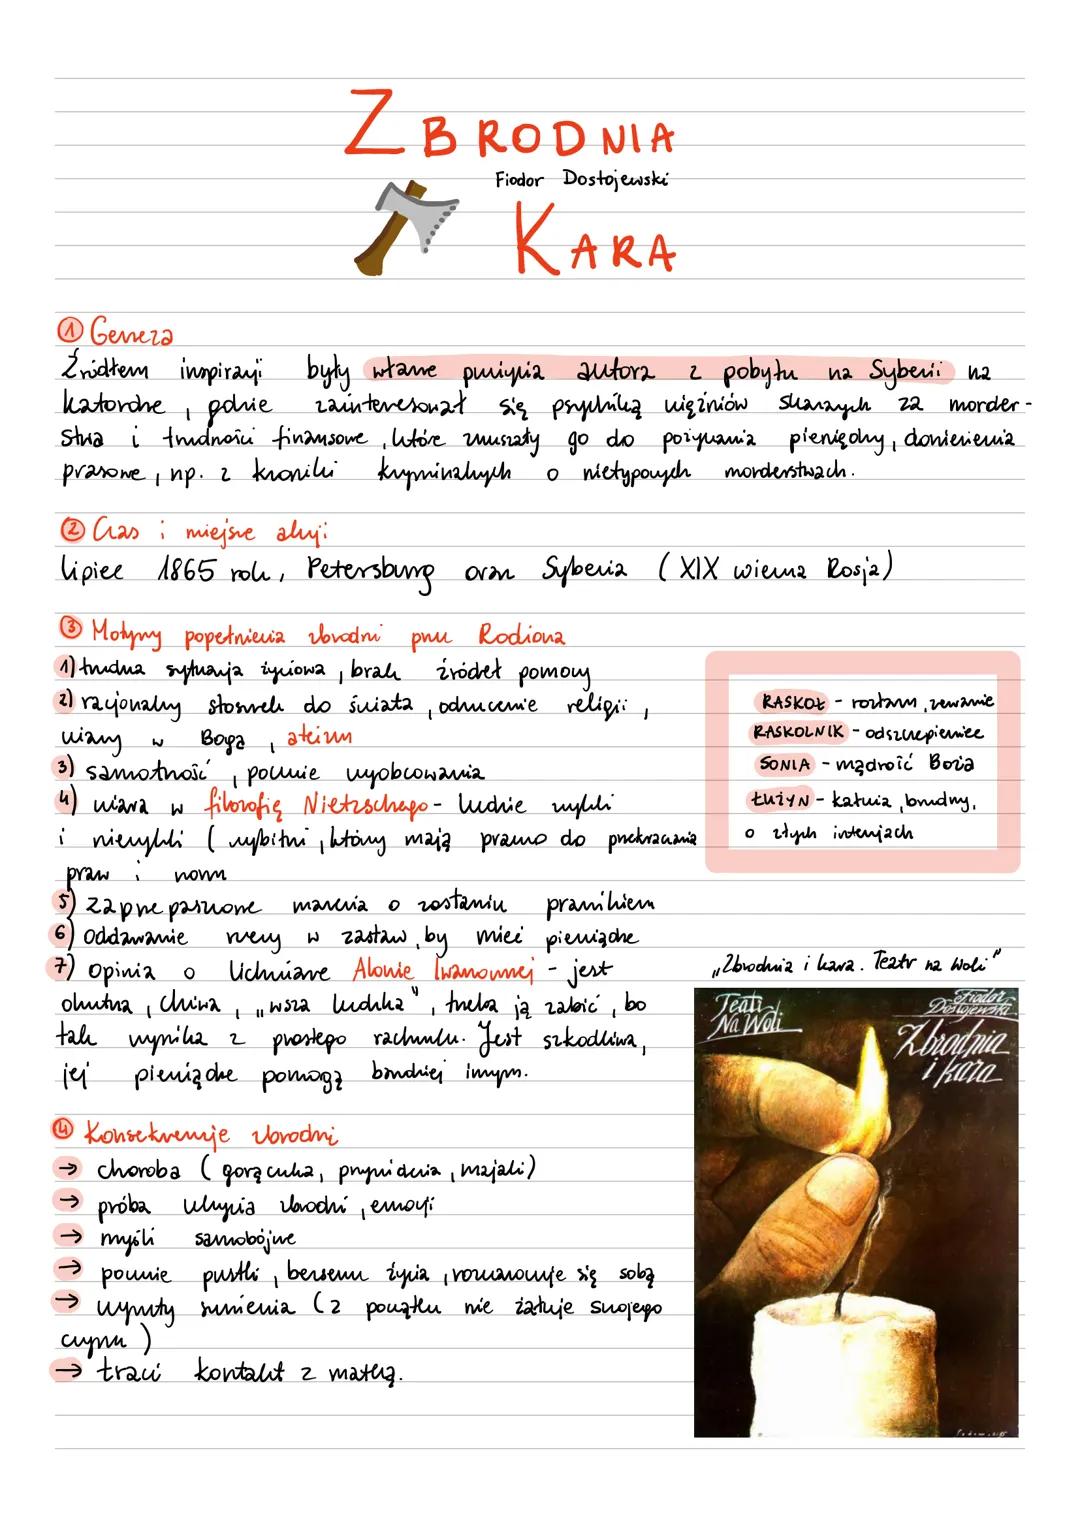 ZBRODNIA
Fiodor Dostojewski
KARA
① Geneza
Źródłem inspiracji były własne przeżycia autora z pobytu na Syberii na
katordze, gdzie zainteresował się psychiką więźniów skazanych za morder-
stwa i trudności finansowe, które zmuszały go do pożyczania pieniędzy, doniesienia
prasowe, np. z kroniki kryminalnych o nietypowych morderstwach.
② Czas i miejsce akcji
lipiec 1865 roku, Petersburg oraz Syberia (XIX wieczna Rosja)
③ Motywy popełnienia zbrodni przez Rodiona
1) trudna sytuacja życiowa, brak źródeł pomocy
2) racjonalny stosunek do świata, odrzucenie religii,
wiary w Boga, ateizm
3) samotność, poczucie wyobcowania
4) wiara w filozofię Nietzschego - ludzie zwykli
i niezwykli (wybitni, którzy mają prawo do przekraczania
praw i norm
5) zaprzepaszczone marzenia o zostaniu prawnikiem
6) oddawanie rzeczy w zastaw, by mieć pieniądze
7) Opinia o lichwiarce Alonie Iwanownej - jest
okrutna, chciwa, „wsza ludzka", trzeba ją zabić, bo
tak wynika z prostego rachunku. Jest szkodliwa,
jej pieniądze pomogą bardziej innym.
RASKOŁ - rozłam, zerwanie
RASKOLNIK - odszczepieniec
SONIA - mądrość Boża
ŁUŻYN - kałuża, brudny,
o złych intencjach
④ Konsekwencje zbrodni
→ choroba (gorączka, przywidzenia, majaki)
→ próba ukrycia zbrodni, emocji
→ myśli samobójcze
→ poczucie pustki, bezsensu życia, rozczarowuje się sobą
→ wyrzuty sumienia (z początku nie żałuje swojego
czynu)
→ traci kontakt z matką.
„Zbrodnia i kara. Teatr na Woli"
Teatr
Na Woli
Fiodor
Dostojewski
Zbrodnia
i kara